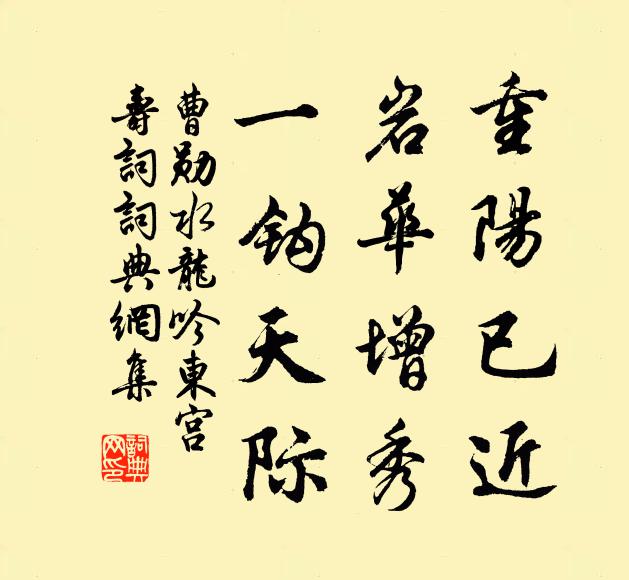 重陽已近
岩華增秀
一鈎天际
曹勛水龍吟東宮
壽詞詞典網集
詞典
网印